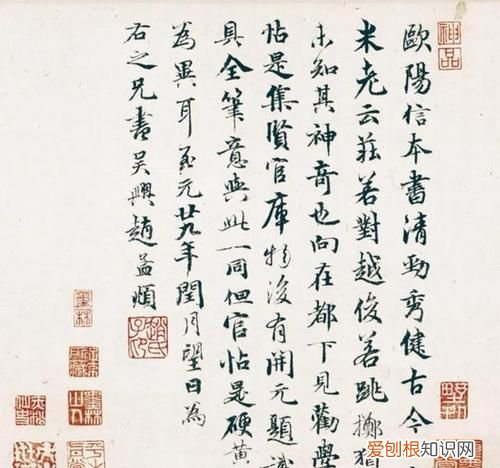 歐陽信本書清勁秀健古今
米老云莊若對越俊若跳擲猶
未知其神奇也向在都下見勸學
帖是集賢官庫物後有開元題識
具全筆意與此一同但官帖是硬黃
為異耳至元廿九年閏月望日為
右之兄書吳興趙孟頫
神品
趙氏子昂
墨林
墨林山人
爱刨根知识网